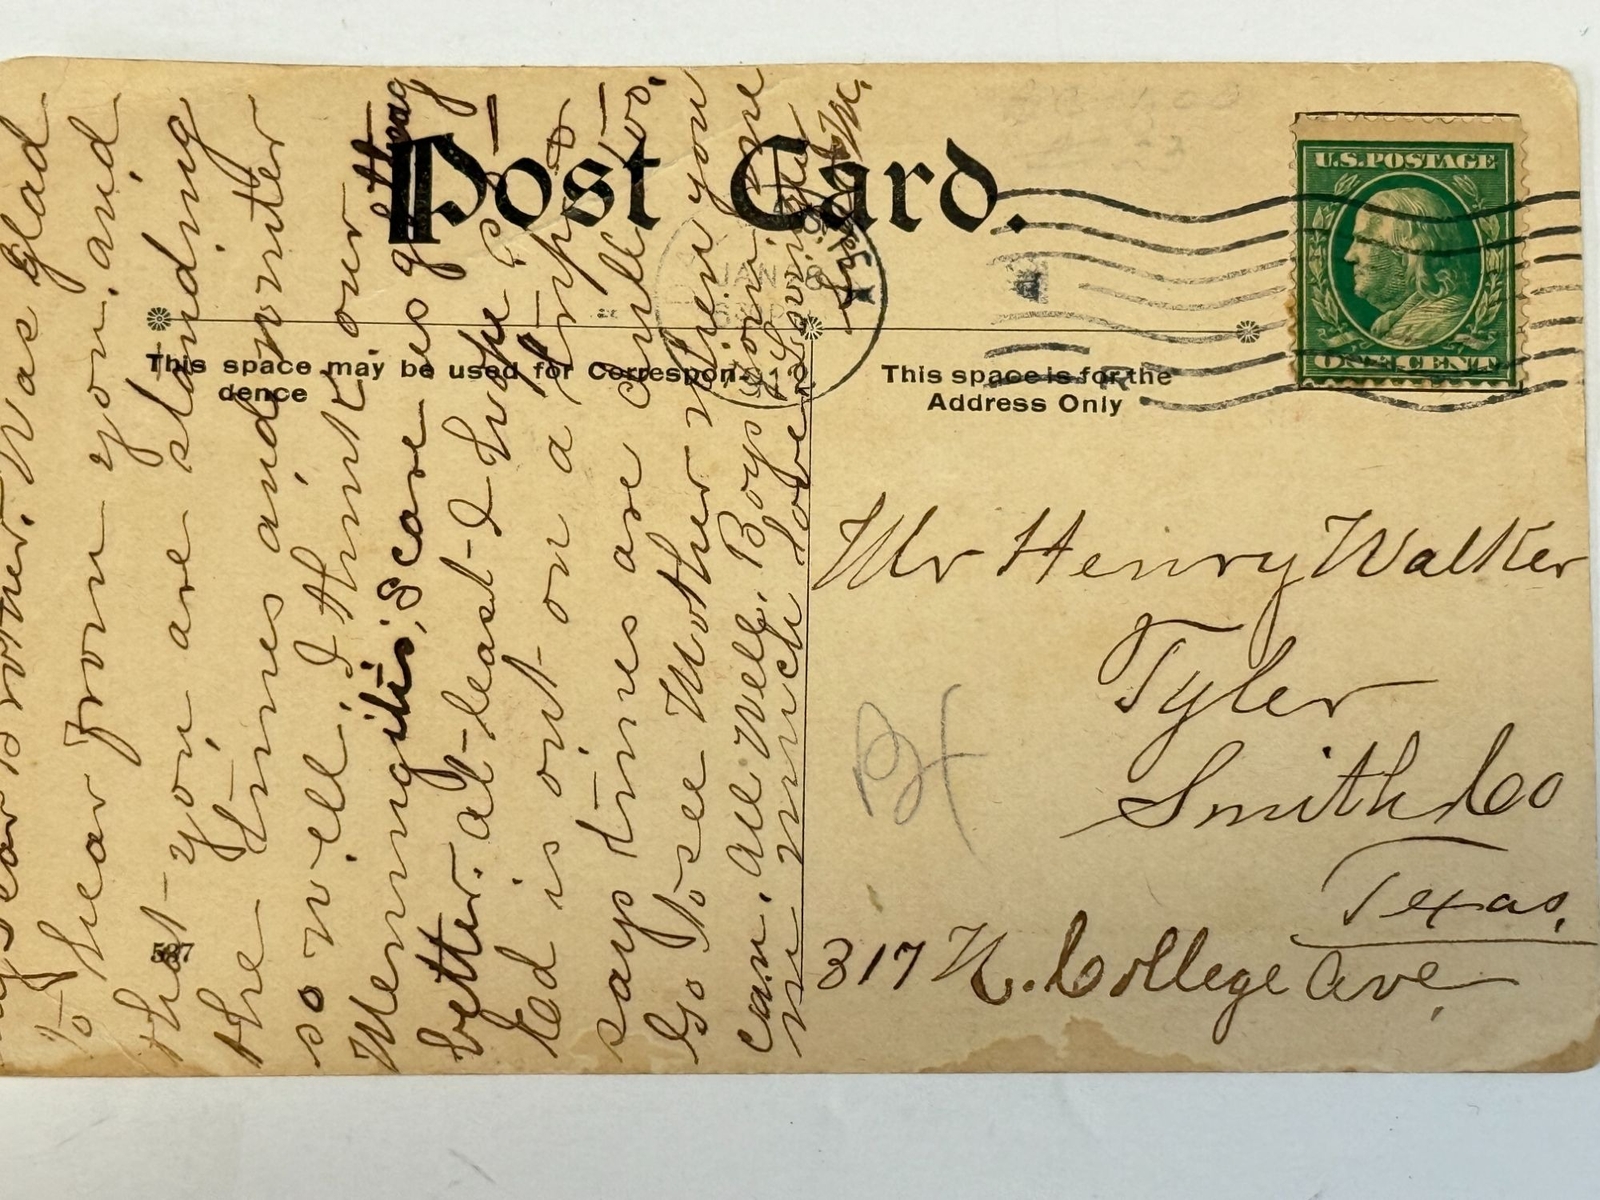 Post Card.
U.S. POSTAGE
ONE CENT
JAN
This space may be used for Correspon-
dence
This space is for the
Address Only
Mr Henry Walker
Tyler
Smith Co
Texas.
317 N. College Ave.
587
Dear Brother. Was glad
to hear from you. and
that you are standing
the times and winter
so well, I think our
Meningitis, Scare is getting
better. at least I hope
Ed is out on a trip &
says times are awful
Go to see Mother when you
can. All Well. Boys
much love